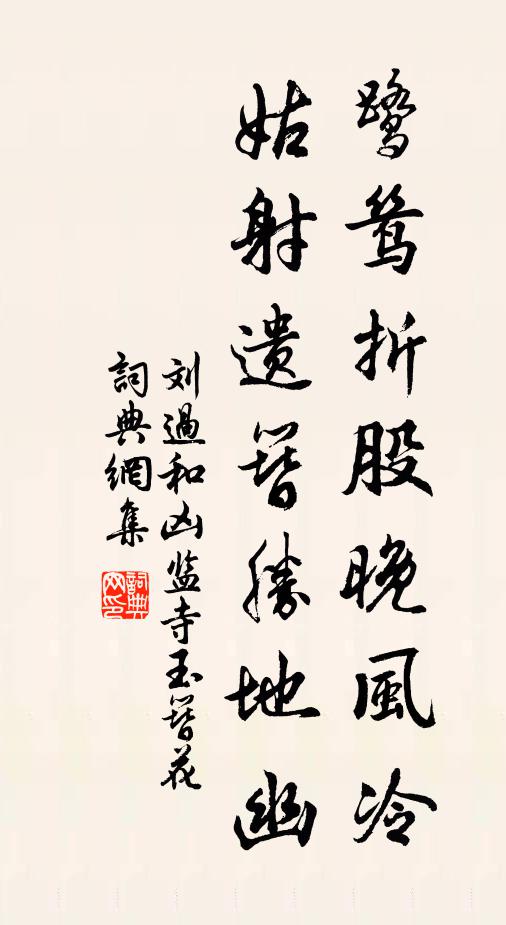 鹭鸶折股晚風冷
姑射遗簪勝地幽
刘過和凶监寺玉簪花
詞典網集
詞典网印